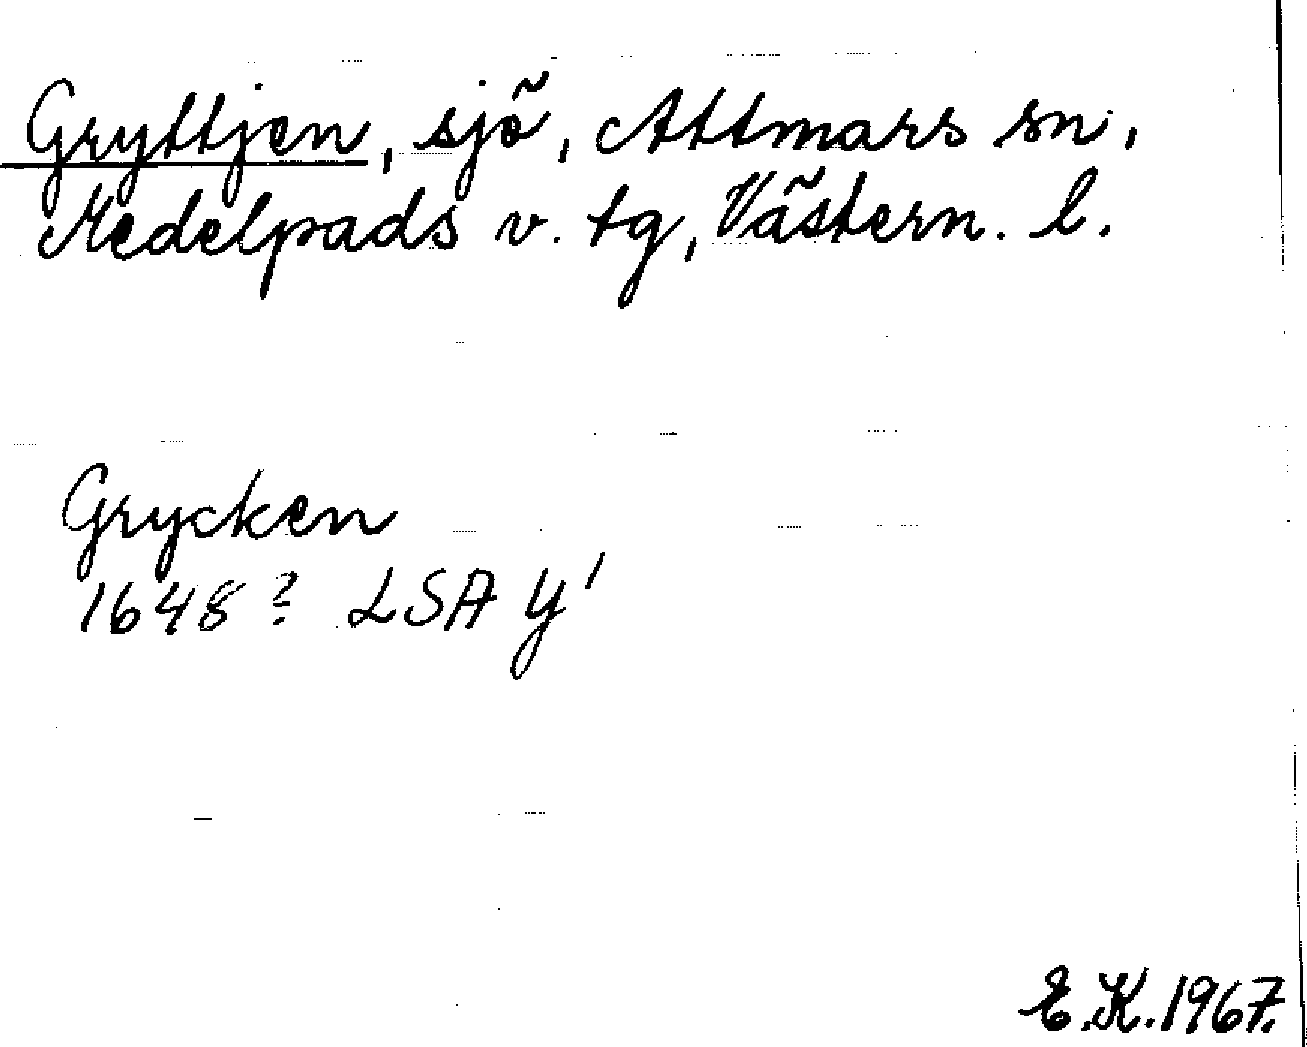 Gryttjen, sjö, Attmars sn,
Medelpads v. tg, Västern. l.
Grycken
1648? LSA Y'
E.K. 1967.